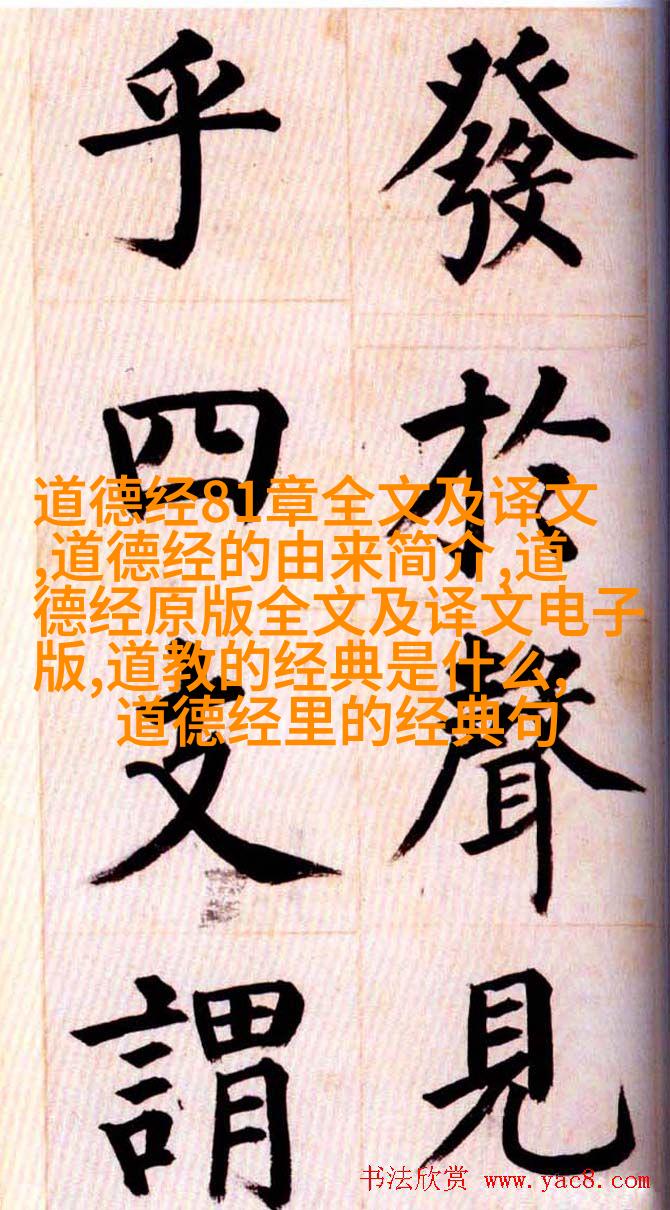 發於聲見
乎四支謂
道德经81章全文及译文
,道德经的由来简介,道
德经原版全文及译文电子
版,道教的经典是什么,
道德经里的经典句
书法欣赏 www.yac8.com